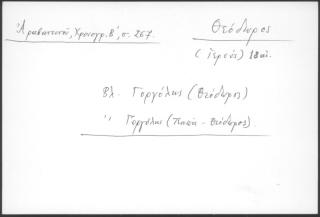 Ἀραβαντινοῦ, Χρονογρ. Β', σ. 267.
Θεόδωρος
(Ἱερεύς) 18 αἰ.
Βλ. Γοργόλης (Θεόδωρος)
" Γοργόλης (Παπᾶ - Θεόδωρος).